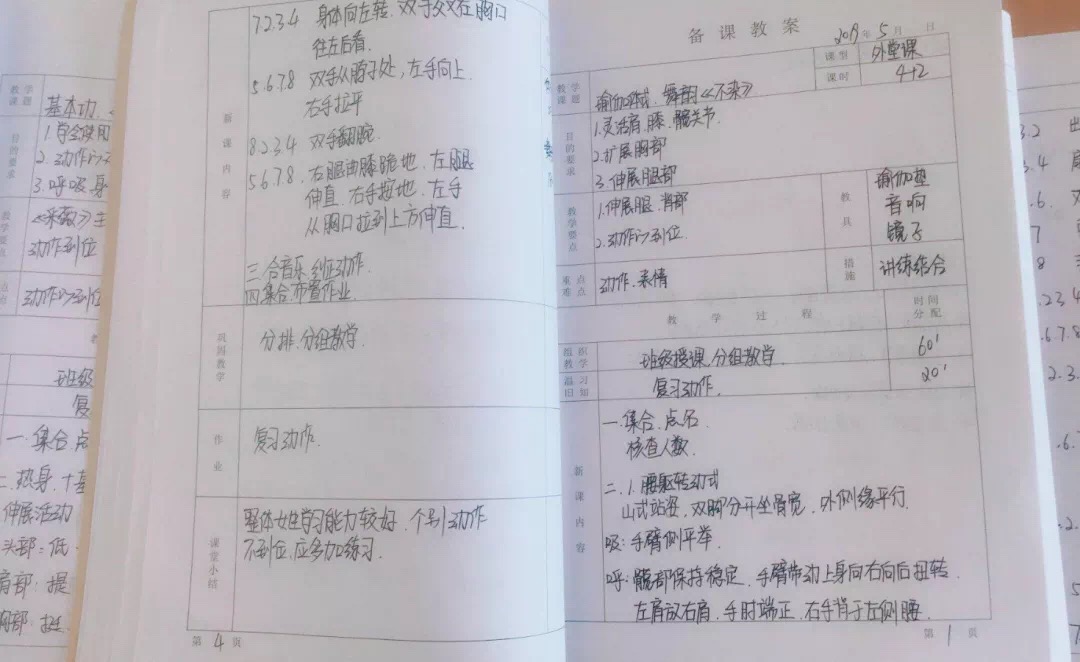 教学课题
基本功
目的要求
2. 动作
3. 呼吸
动作到位
动作
班级
复
一. 集合. 点
二. 热身.
伸展活动
头部: 低
肩部: 提
胸部: 挺
7.2.3.4 身体向左转. 双手交叉在胸口
往左后看.
5.6.7.8 双手从胸口处, 左手向上.
右手拉平
8.2.3.4 双手翻腕.
5.6.7.8. 右腿曲膝跪地. 左腿
伸直. 右手撑地. 左手
从胸口拉到上方伸直.
三. 合音乐
动作.
四. 集合. 布置作业.
新课内容
巩固教学
分排. 分组教学.
作业
复习动作.
课堂小结
整体女生学习能力较好. 个别动作
不到位, 应多加练习.
第 4 页
备课教案
2019年 5月 日
课型
课时 4+2
教学课题
瑜伽
舞韵《不染》
目的要求
1. 灵活肩. 膝. 髋关节.
2. 扩展胸部
3. 伸展腿部
教学要点
1. 伸展腿. 背部
2. 动作
到位.
教具
瑜伽垫
音响
镜子
重点难点
动作. 表情
措施
讲练结合
教学过程
时间分配
组织教学
班级授课. 分组教学.
60'
温习旧知
复习动作.
20'
新课内容
一. 集合. 点名.
核查人数.
二. 1. 腰躯转动式
山式站姿. 双脚分开坐骨宽. 外侧缘平行
吸: 手臂侧平举.
呼: 髋部保持稳定. 手臂带动上身向右向后扭转.
左肩放右肩. 手肘端正. 右手背于左侧腰.
第 1 页